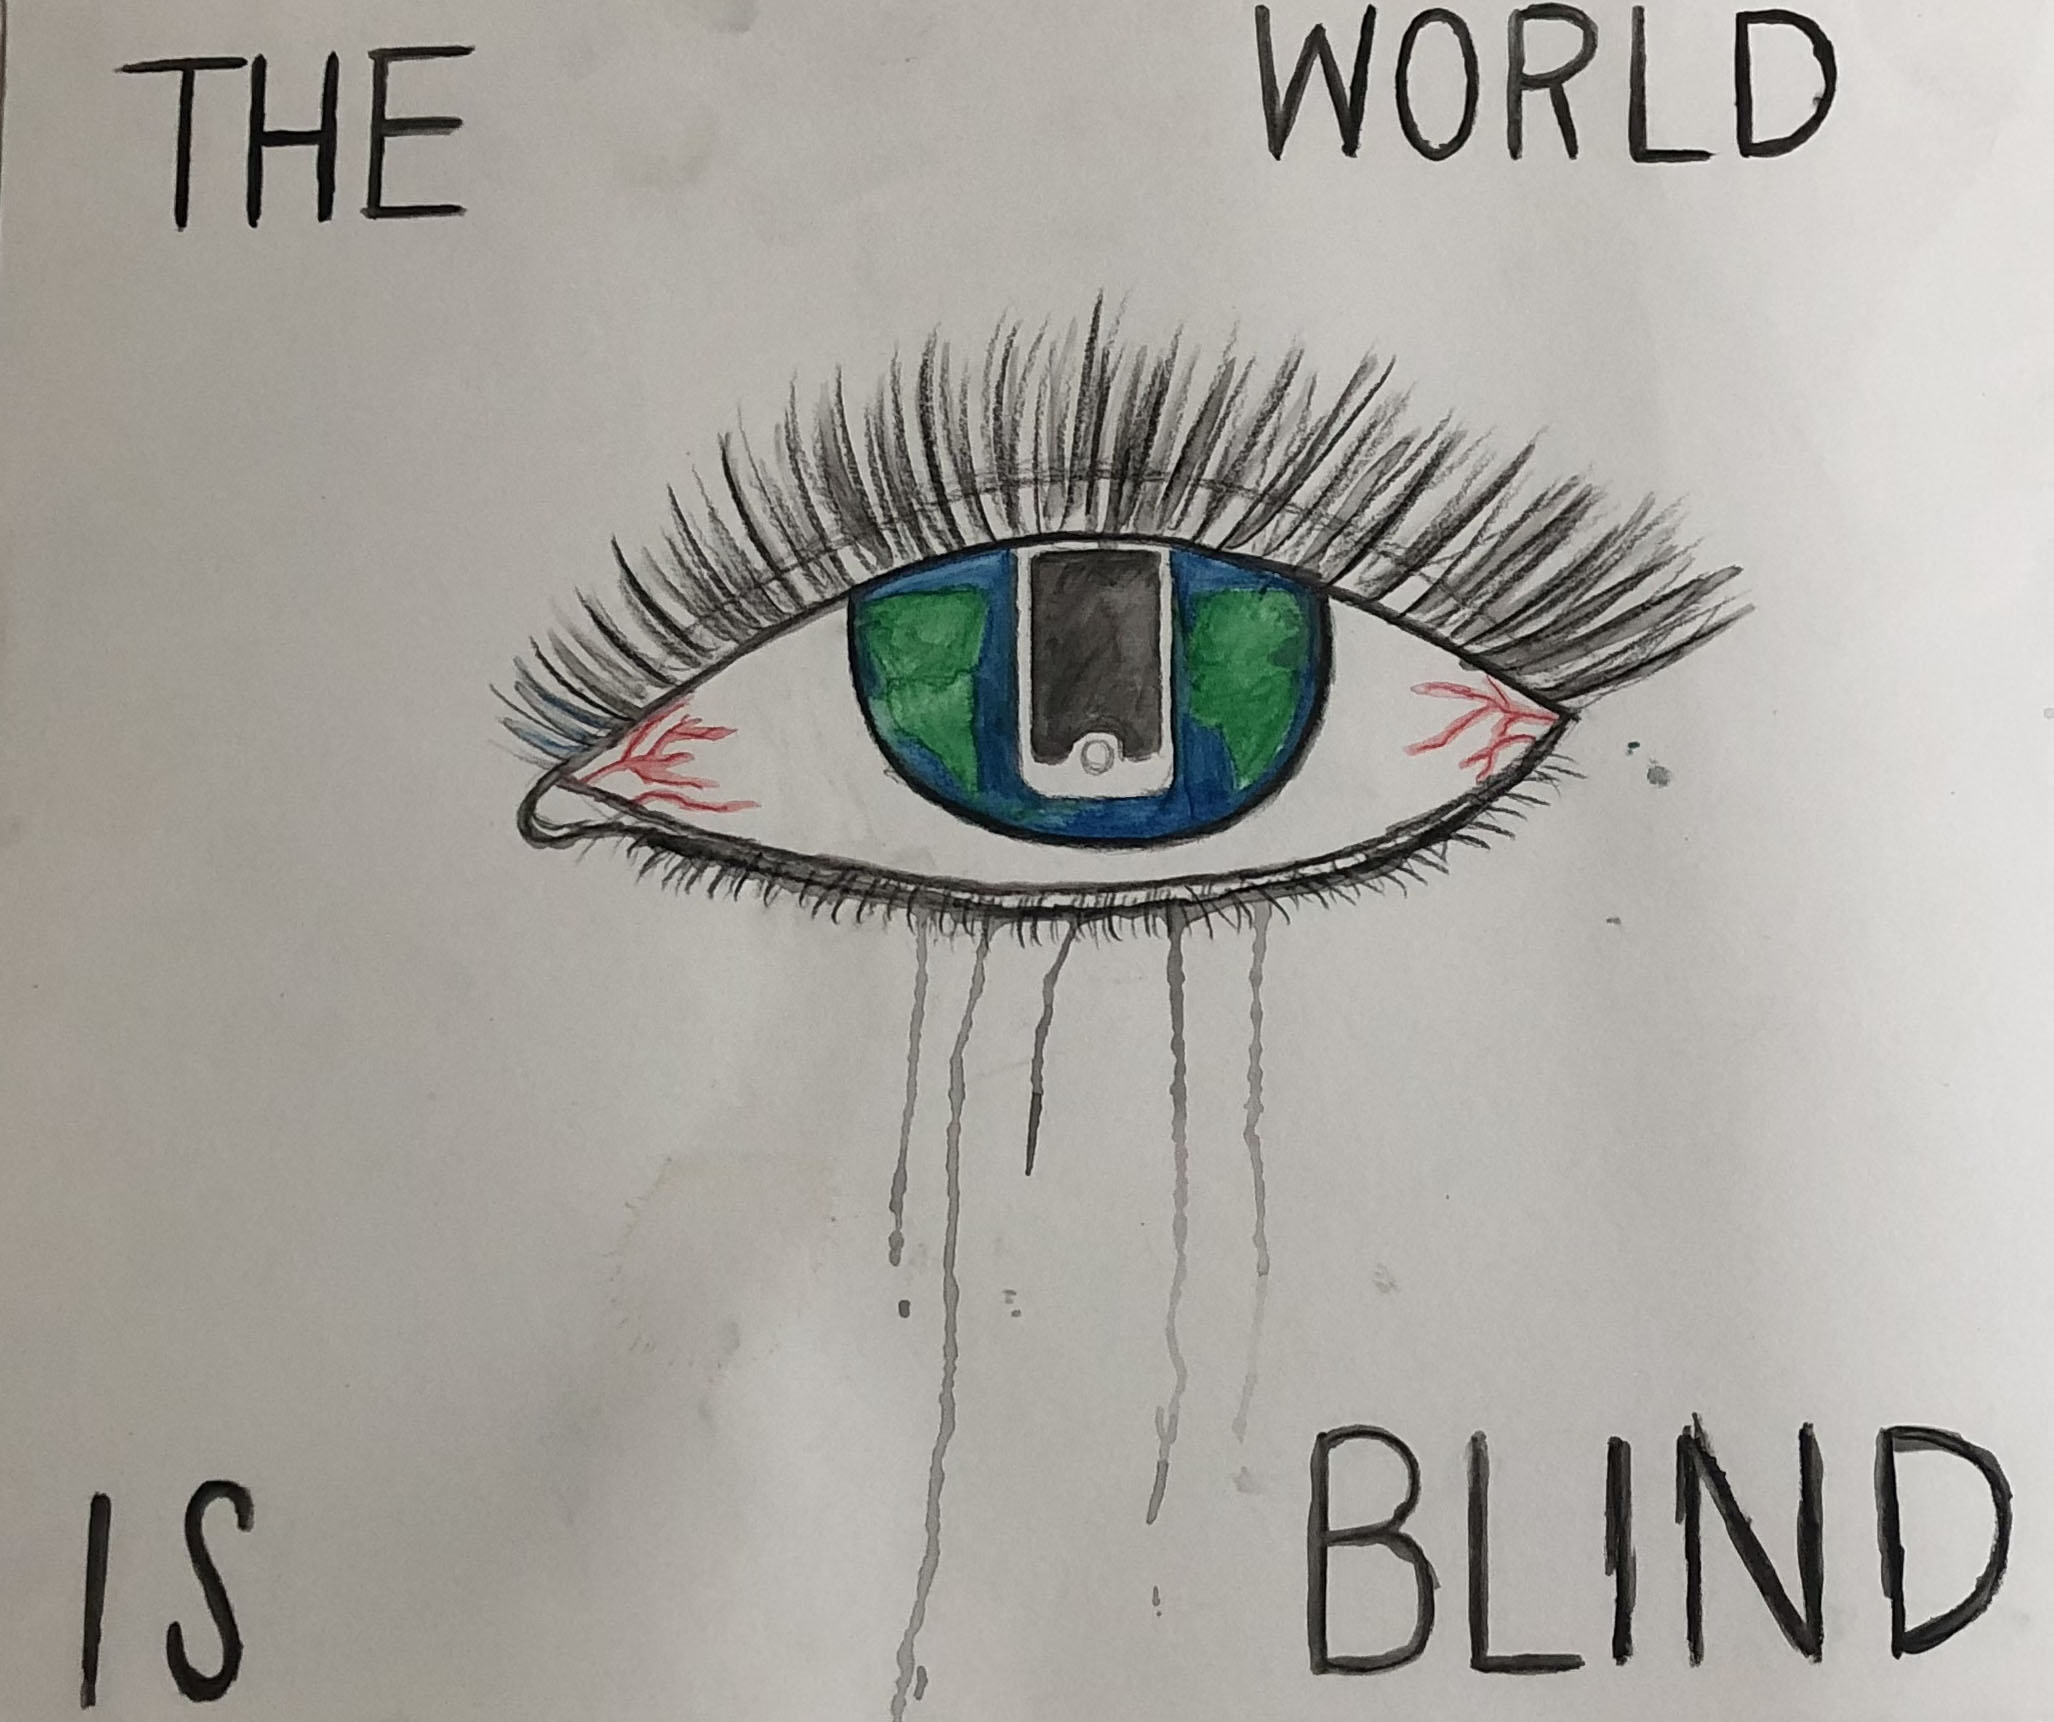 THE WORLD
IS BLIND